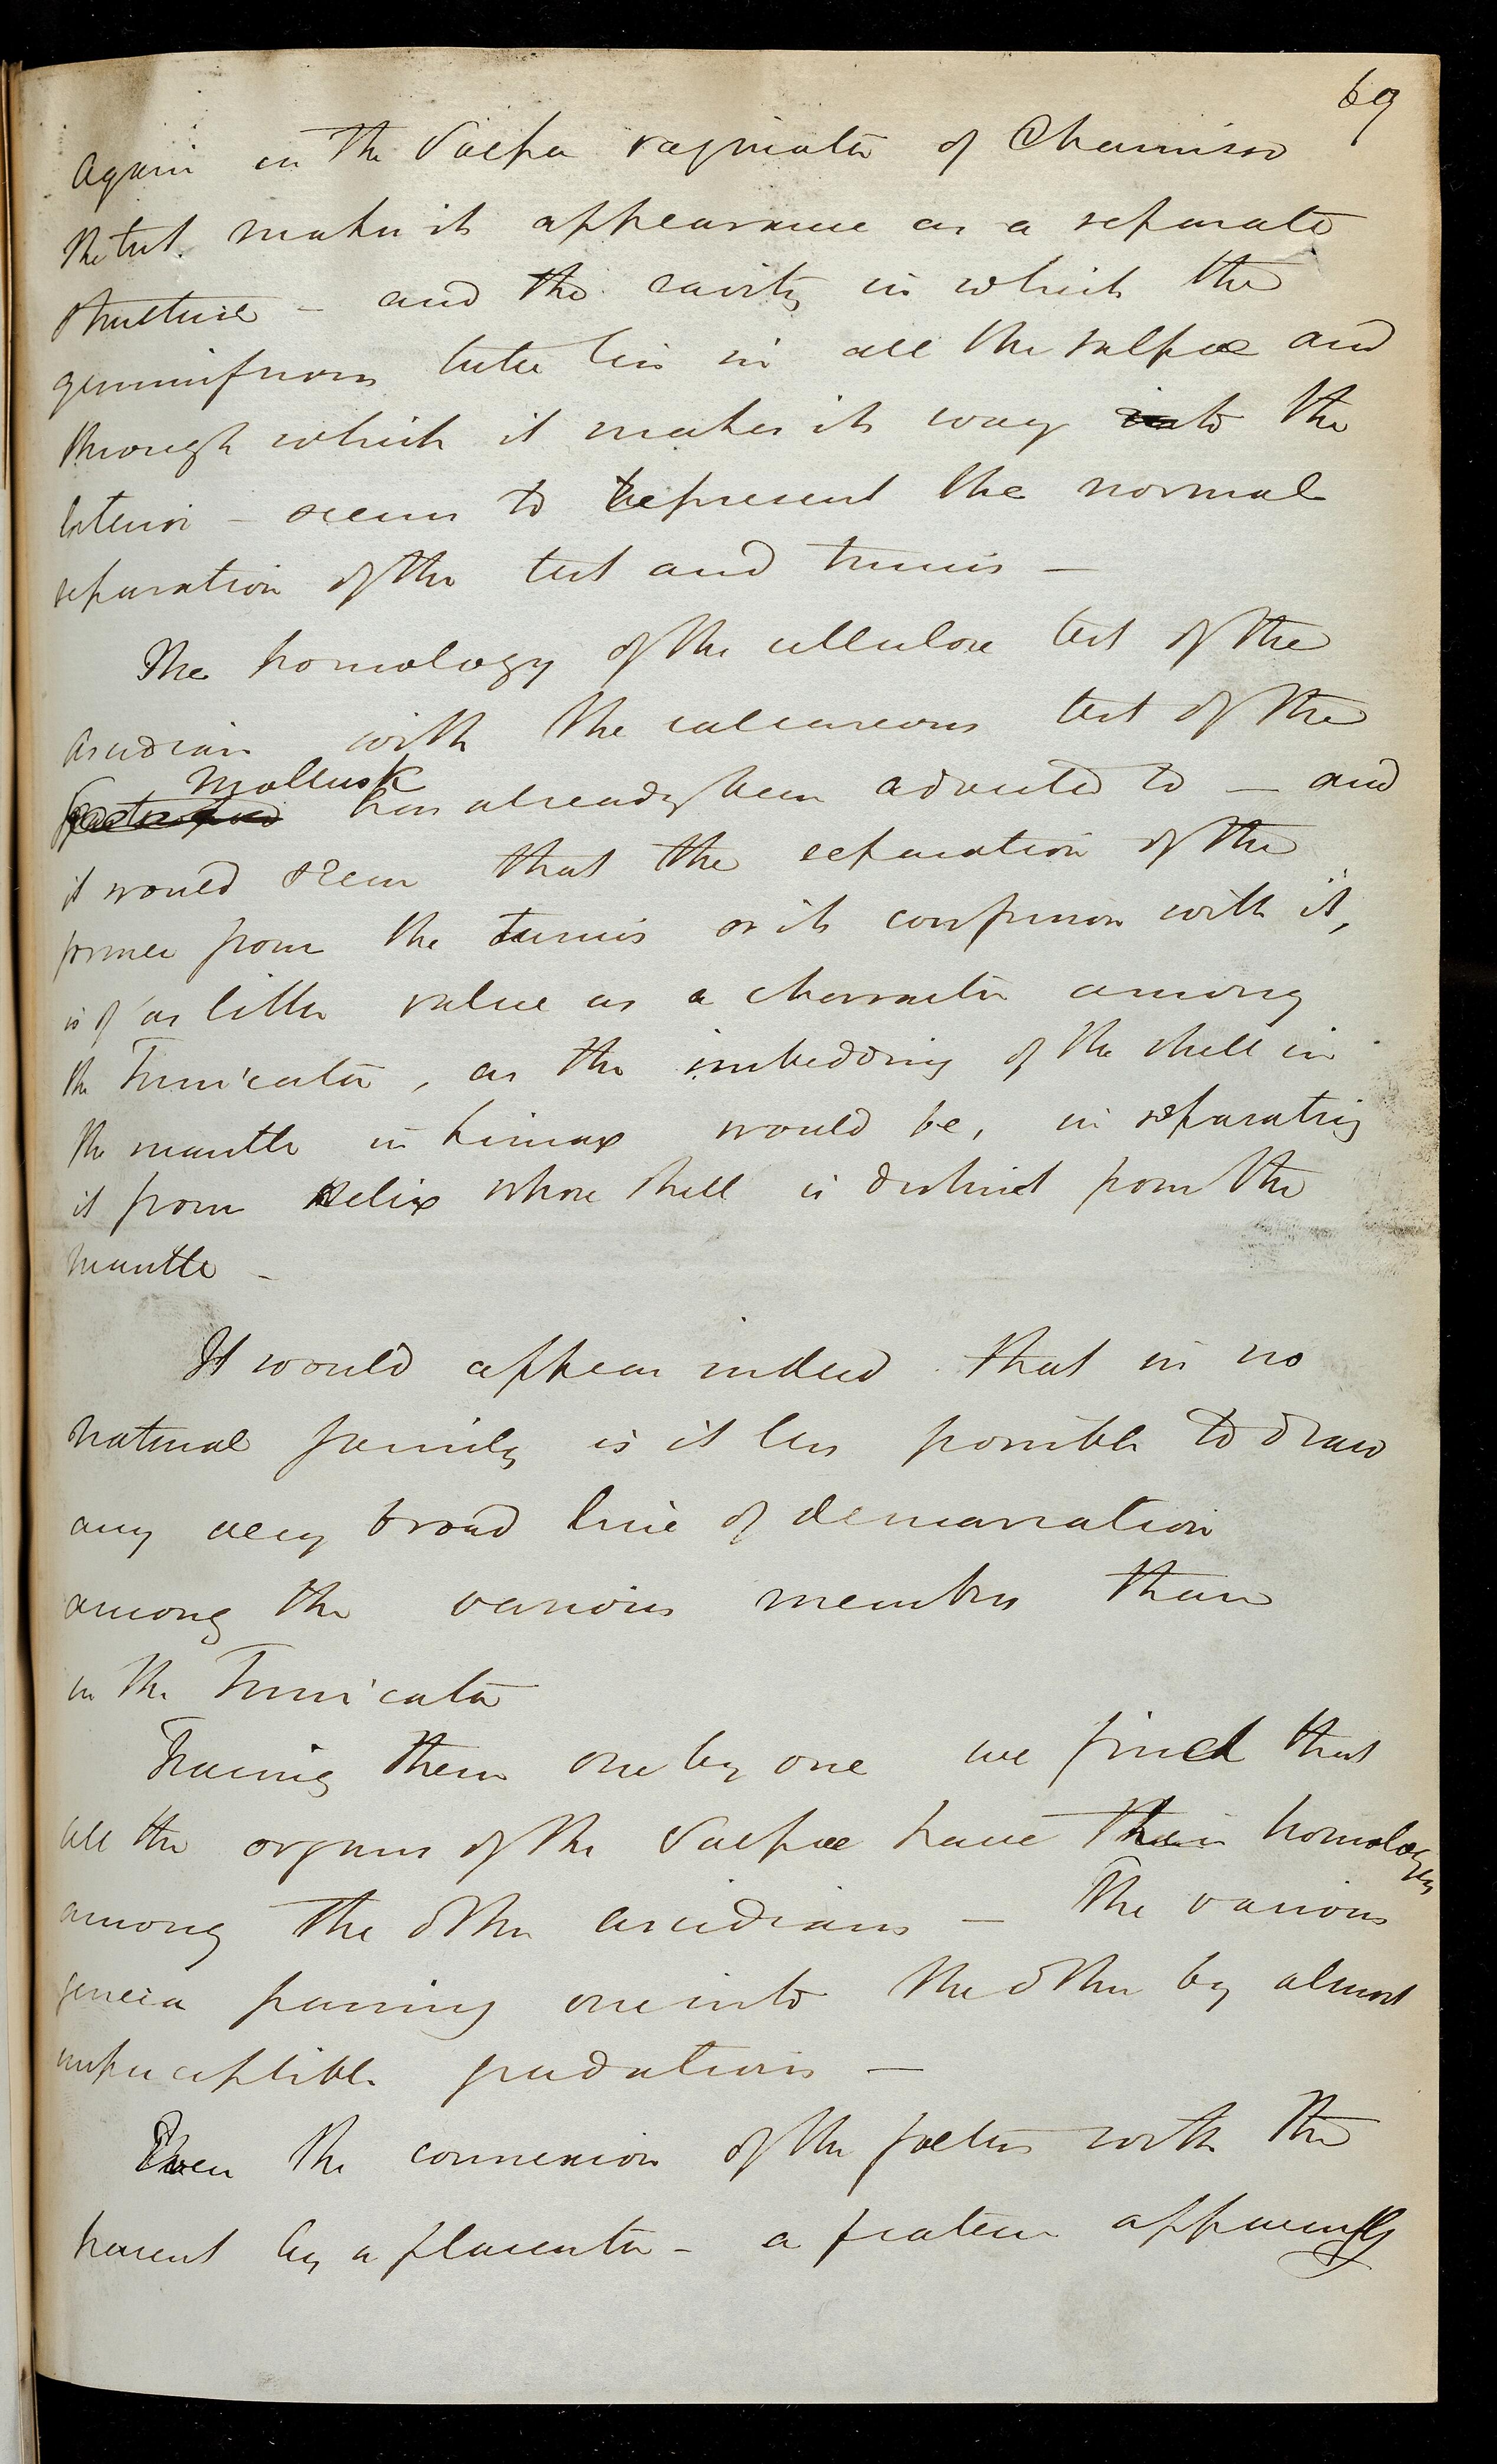 69
Again in the Salpa vaginata of Chamisso
the test makes its appearance as a separate
structure – and the cavity in which the
gemmiferous tube lies in all the salpae and
through which it makes its way to the
exterior – seems to represent the normal
separation of the test and tunic –
The homology of the cellulose test of the
ascidian with the calcareous test of the
Mollusk
has already been adverted to – and
it would seem that the separation of the
former from the tunic or its confusion with it,
is of as little value as a character among
the Tunicata, as the imbedding of the shell in
the mantle in Limax would be, in separating
it from Helix whose shell is distinct from the
mantle –
It would appear indeed that in no
natural family is it less possible to draw
any very broad line of demarcation
among the various members than
in the Tunicata
Tracing them one by one we find that
all the organs of the Salpae have their homologues
among the other ascidians – The various
genera passing one into the other by almost
imperceptible gradations –
Even the connexion of the foetus with the
parent by a placenta – a feature apparently